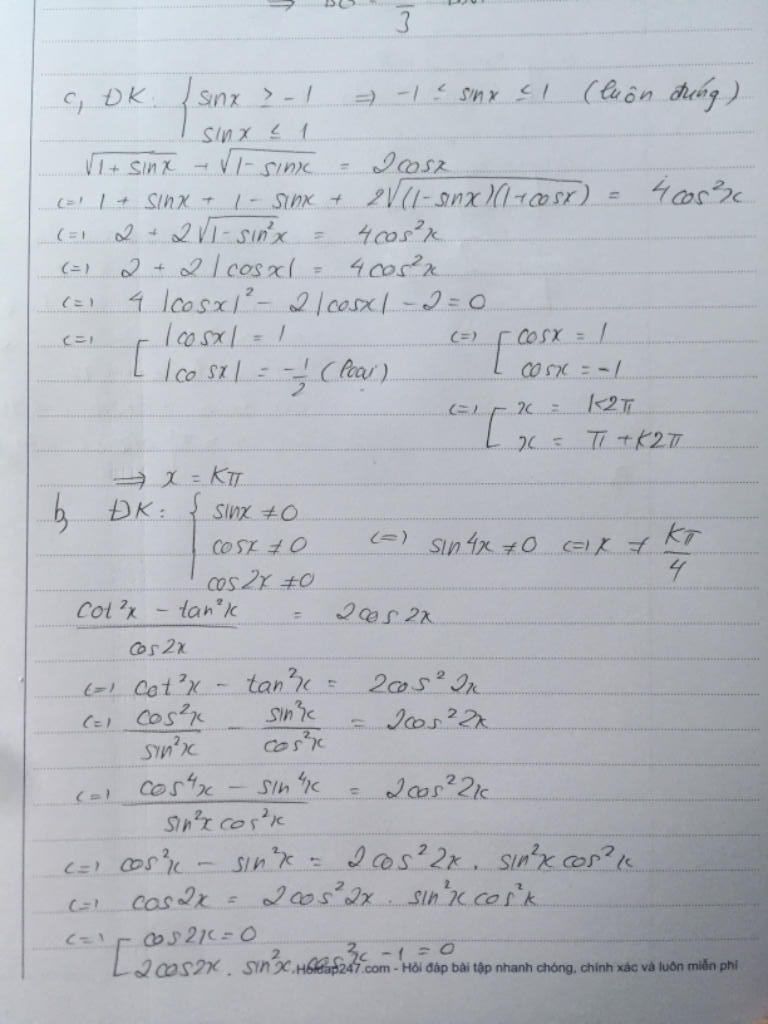 3
c, ĐK: { sinx ≥ -1 => -1 ≤ sinx ≤ 1 (luôn đúng)
sinx ≤ 1
√(1+sinx) + √(1-sinx) = 2cosx
<=> 1 + sinx + 1 - sinx + 2√((1-sinx)(1+cosx)) = 4cos²x
<=> 2 + 2√(1-sin²x) = 4cos²x
<=> 2 + 2|cosx| = 4cos²x
<=> 4|cosx|² - 2|cosx| - 2 = 0
<=> [ |cosx| = 1 <=> [ cosx = 1
|cosx| = -1/2 (loại) cosx = -1
<=> [ x = k2π
x = π + k2π
=> x = kπ
b, ĐK: { sinx ≠ 0
cosx ≠ 0 <=> sin4x ≠ 0 <=> x ≠ kπ/4
cos2x ≠ 0
(cot²x - tan²x)/cos2x = 2cos2x
<=> cot²x - tan²x = 2cos²2x
<=> cos²x/sin²x - sin²x/cos²x = 2cos²2x
<=> (cos⁴x - sin⁴x)/(sin²x cos²x) = 2cos²2x
<=> cos²x - sin²x = 2cos²2x . sin²x cos²x
<=> cos2x = 2cos²2x . sin²x cos²x
<=> [ cos2x = 0
2cos2x . sin²x . cos²x - 1 = 0
Hoidap247.com - Hỏi đáp bài tập nhanh chóng, chính xác và luôn miễn phí